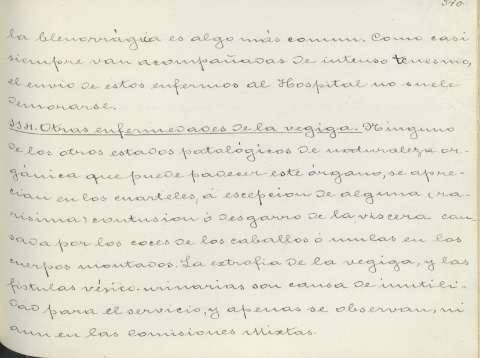 370.
la blenorrágia es algo más comun. Como casi
siempre van acompañadas de intenso tenesmo,
el envio de estos enfermos al Hospital no suele
demorarse.
Otras enfermedades de la vegiga. Ninguno
de los otros estados patológicos de naturaleza or-
gánica que puede padecer este órgano, se apre-
cian en los cuarteles, á escepcion de alguna (ra-
rísima) contusion ó desgarro de la viscera cau
sada por los coces de los caballos ó mulas en los
cuerpos montados. La extrofia de la vegiga, y las
fistulas véxico-urinarias son causa de inutili-
dad para el servicio, y apenas se observan, ni
aun en las comisiones Mixtas.